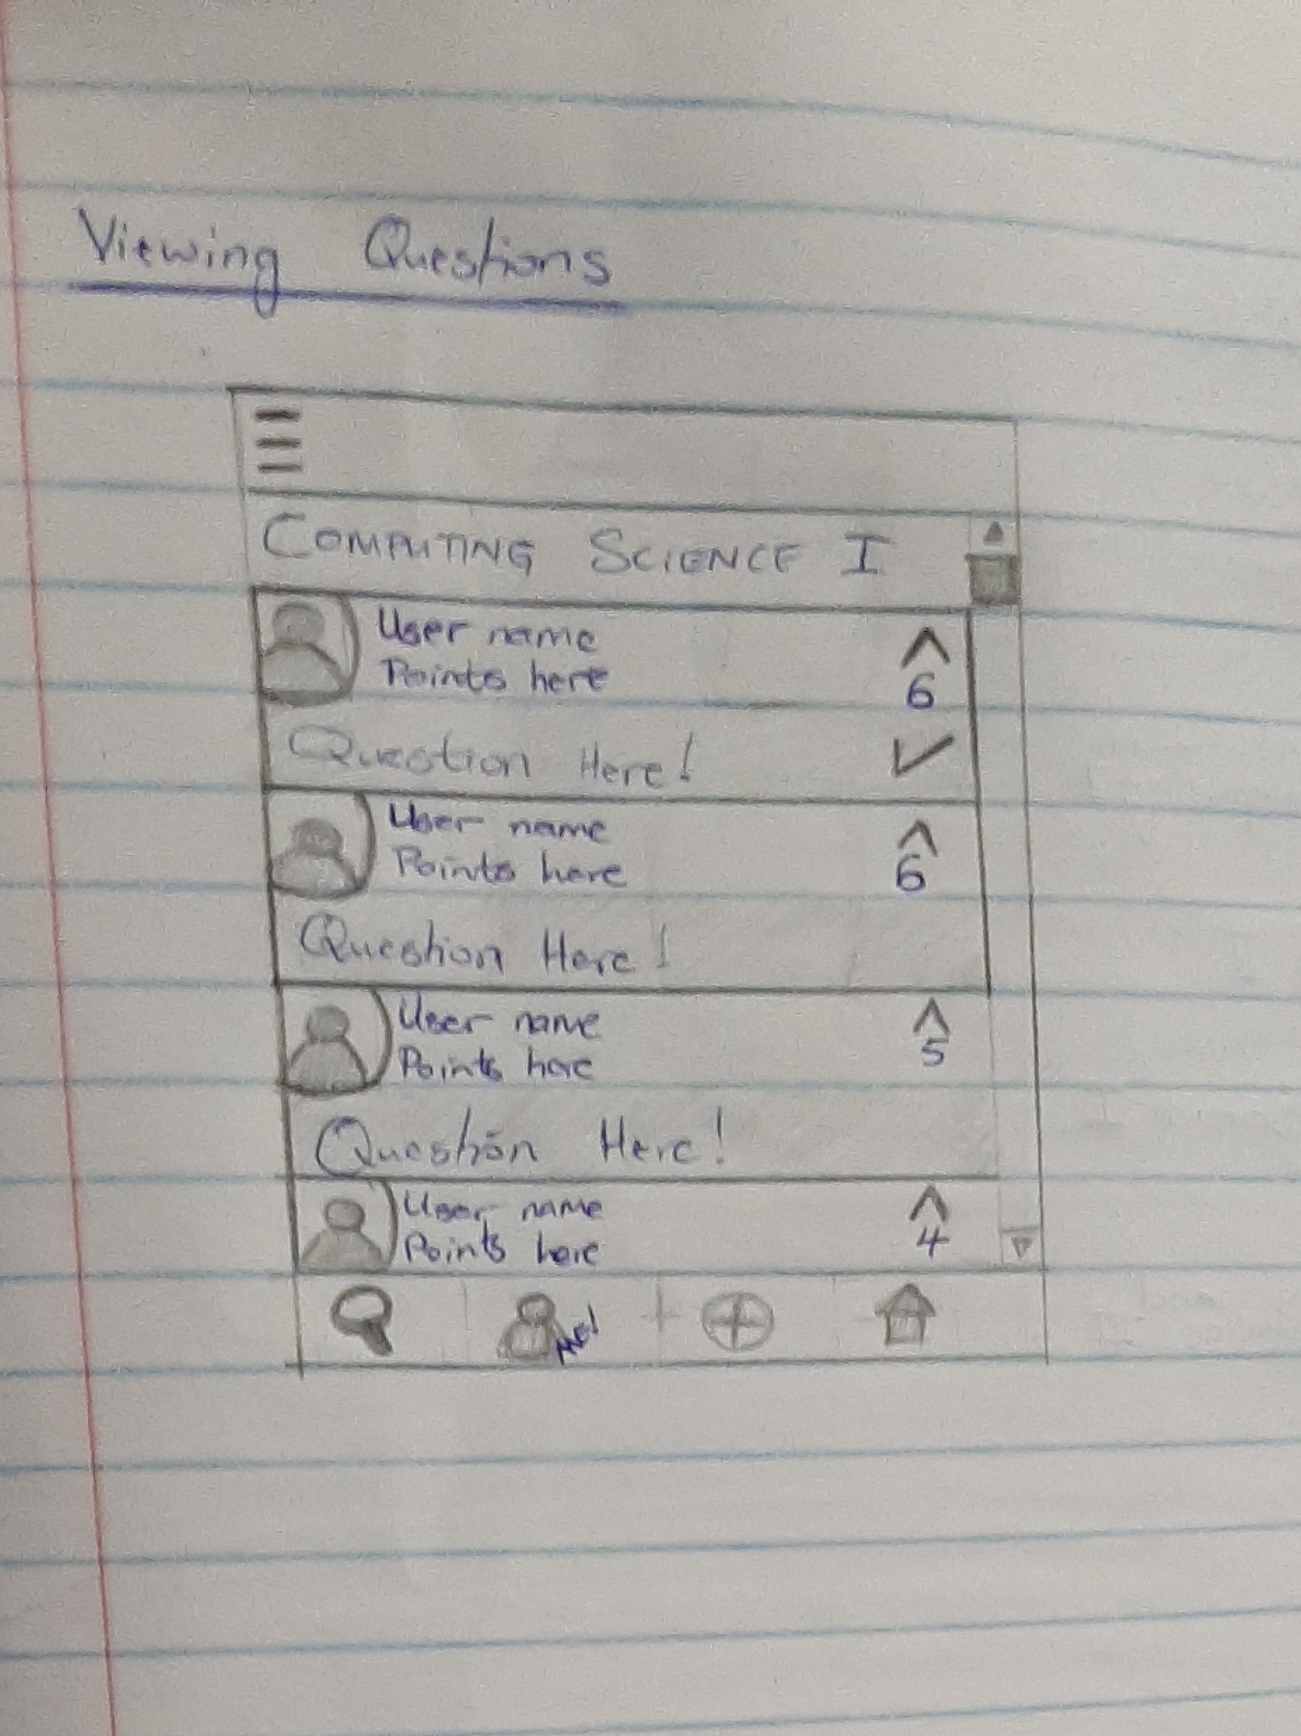 Viewing Questions
COMPUTING SCIENCE I
User name
Points here
6
Question Here!
User name
Points here
6
Question Here!
User name
Points here
5
Question Here!
User name
Points here
4
ME!